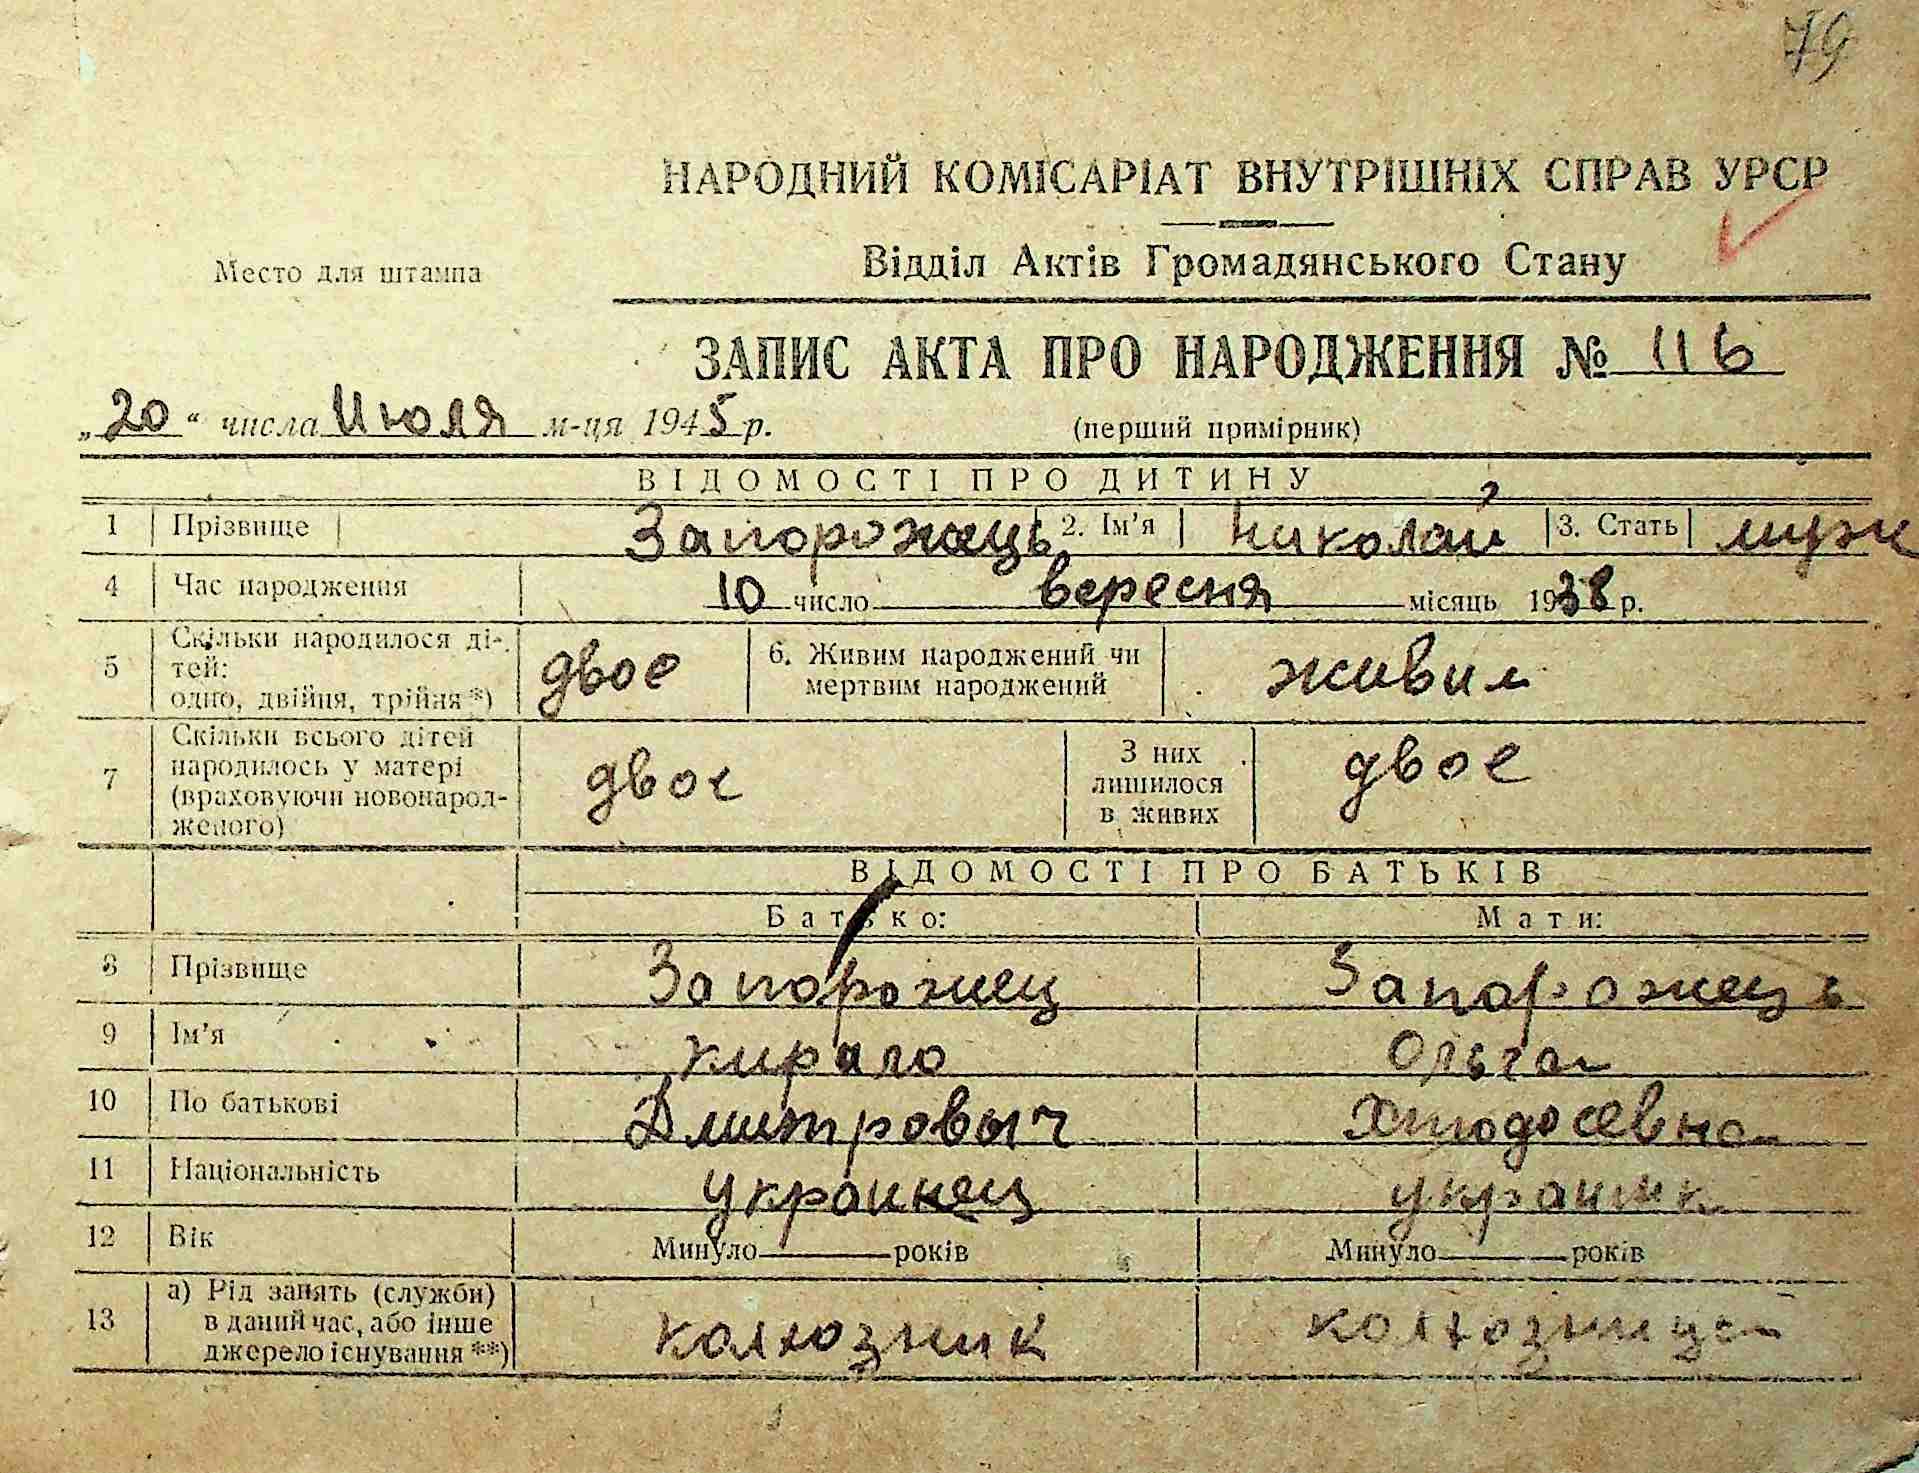 79
НАРОДНИЙ КОМІСАРІАТ ВНУТРІШНІХ СПРАВ УРСР
Место для штампа
Відділ Актів Громадянського Стану
ЗАПИС АКТА ПРО НАРОДЖЕННЯ № 116
„20“ числа Июля м-ця 1945 р.
(перший примірник)
ВІДОМОСТІ ПРО ДИТИНУ
1 Прізвище Запорожець 2. Ім’я Николай 3. Стать муж
4 Час народження 10 число вересня місяць 1938 р.
5 Скільки народилося ді-
тей:
одно, двійня, трійня *) двое
6. Живим народжений чи
мертвим народжений живим
7 Скільки всього дітей
народилось у матері
(враховуючи новонарод-
женого) двое
З них
лишилося
в живих двое
ВІДОМОСТІ ПРО БАТЬКІВ
Батько: Мати:
8 Прізвище Запорожец Запорожець
9 Ім’я Кирило Ольга
10 По батькові Дмитровыч
11 Національність украинец
12 Вік Минуло років Минуло років
13 а) Рід занять (служби)
в даний час, або інше
джерело існування **) колхозник колхозница